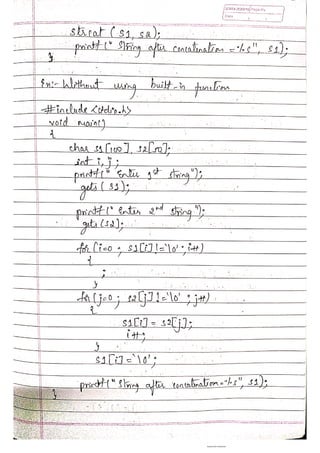 strcat (s1, s2);
printf (" String after concatenation = %s", s1);
}
Ex:- Without using built-in function
#include <stdio.h>
void main()
{
char s1[100], s2[100];
int i, j ;
printf (" Enter 1st string");
gets (s1);
printf (" Enter 2nd string");
gets (s2);
for (i=0 ; s1[i] != '\0' ; i++)
{
;
}
for (j=0 ; s2[j] != '\0' ; j++)
{
s1[i] = s2[j];
i++;
}
s1[i] = '\0';
printf (" String after concatenation = %s", s1);
}